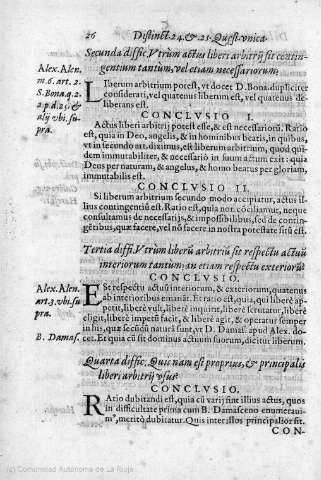 26 Distinct. 24. & 25. Quæst. vnica
Secunda diffic. Vtrùm actus liberi arbitrij sit contin-
gentium tantùm, vel etiam necessariorum.
Alex. Alen.
m. 6. art. 2.
S. Bona. q. 2.
2. p. d. 25. &
alij vbi su-
pra.
Liberum arbitrium potest, vt docet D. Bona. dupliciter
considerati, vel quatenus liberum est, vel quatenus de-
liberans est.
CONCLVSIO I.
Actus liberi arbitrij potest esse, & est necessariorũ. Ratio
est, quia in Deo, angelis, & in hominibus beatis, in quibus,
vt in secundo art. diximus, est liberum arbitrium, quod qui-
dem immutabiliter, & necessariò in suum actum exit: quia
Deus per naturam, & angelus, & homo beatus per gloriam,
immutabilis est.
CONCLVSIO II.
Si liberum arbitrium secundo modo accipiatur, actus il-
lius contingentiũ est. Ratio est, quia nor cõciliamur, neque
consultamus de necessarijs, & impossibilibus, sed de contin-
gẽtibus, quæ facere, vel nõ facere in nostra potestate sita est.
Tertia diffi. Vtrùm liberũ arbitriũ sit respectu actuũ
interiorum tantùm, an etiam respectu exteriorũ?
CONCLVSIO.
Alex. Alen.
art. 3. vbi. su-
pra.
B. Damas.
Est respectu actuũ interiorum, & exteriorum, quatenus
ab interioribus emanãt. Et ratio est, quia, qui liberè appe-
tit, liberè vult, liberè inquirit, liberè scrutatur, liberè
eligit, liberè impetũ facit, & liberè agit, & operatur semper
in his, quæ secũdũ naturã sunt, vt D. Damas. apud Alex. do-
cet. Et quia cũ sit dominus actuũ suorum, dicitur liberum.
Quarta diffic. Quis nam est proprius, & principalis
liberi arbitrij vsus?
CONCLVSIO.
Ratio dubitandi est, quia cũ varij sint illius actus, quos
in difficultate prima cum B. Damasceno enumeraui-
mꝰ, meritò dubitatur. Quis inter illos principalior sit.
CON-
(c) Comunidad Autónoma de La Rioja